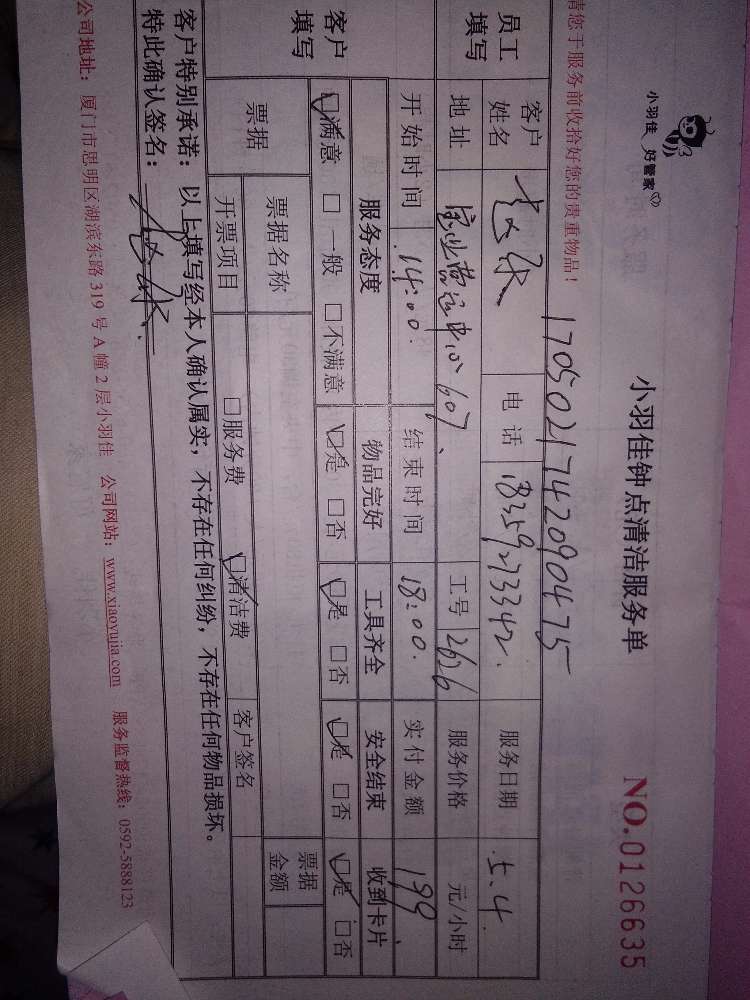 小羽佳 好管家
小羽佳钟点清洁服务单
NO.0126635
请您于服务前收拾好您的贵重物品！
1705021742090475
员工填写
客户姓名 电话 18359273342. 服务日期 5.4
地址 营运中心607、 工号 2626 服务价格 元/小时
开始时间 14:00. 结束时间 18:00. 实付金额 199
客户填写
服务态度 物品完好 工具齐全 安全结束 收到卡片
☑满意 □一般 □不满意 ☑是 □否 ☑是 □否 ☑是 □否 ☑是 □否
票据 票据名称 票据金额
开票项目 □服务费 ☑清洁费 客户签名
客户特别承诺：以上填写经本人确认属实，不存在任何纠纷，不存在任何物品损坏。
特此确认签名：
公司地址：厦门市思明区湖滨东路319号A幢2层小羽佳 公司网站：www.xiaoyujia.com 服务监督热线：0592-5888123